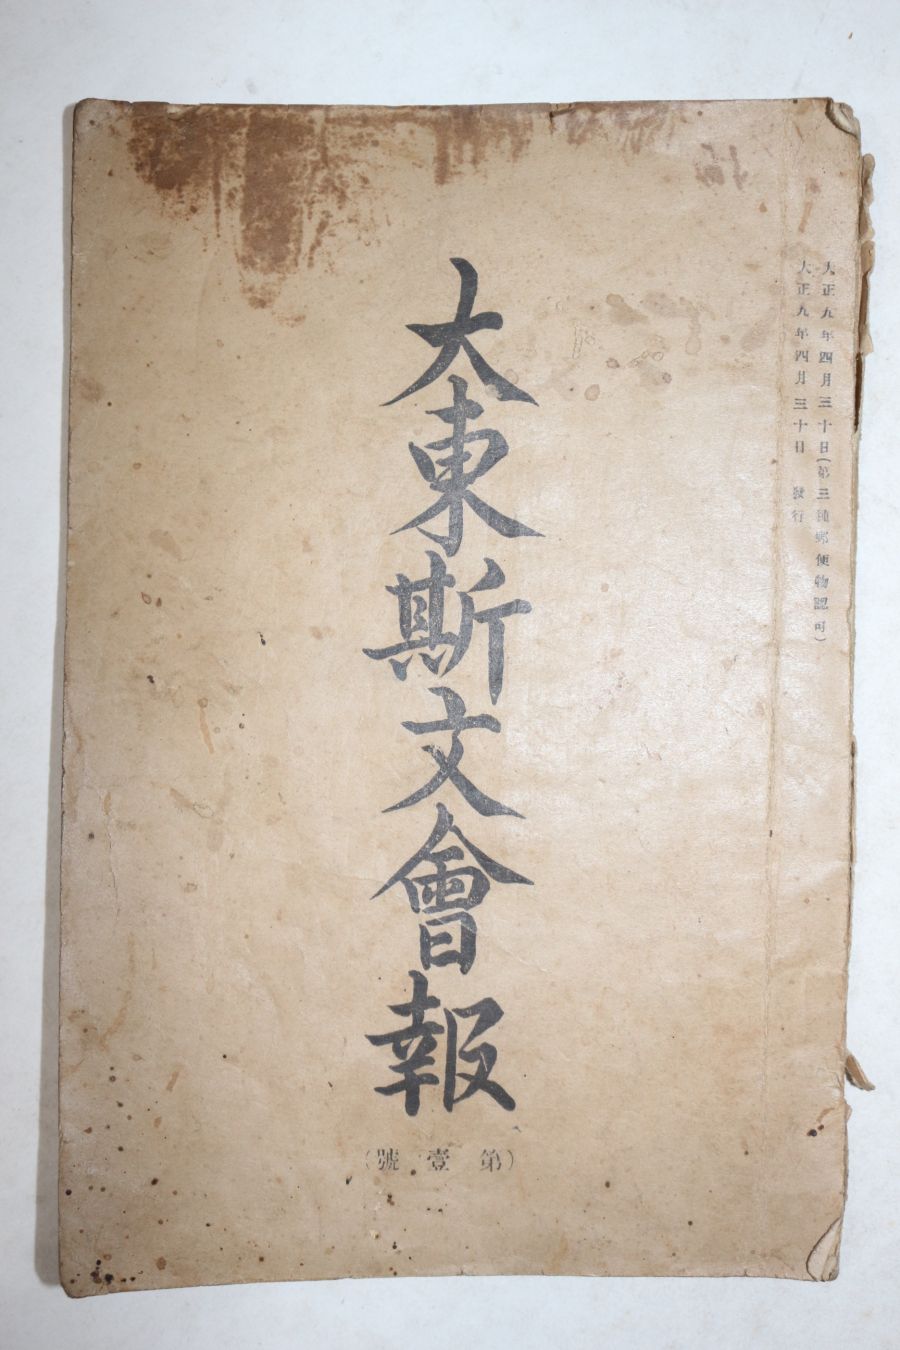 大正九年四月三十日(第三種郵便物認可)
大正九年四月三十日 發行
大東斯文會報
(第壹號)